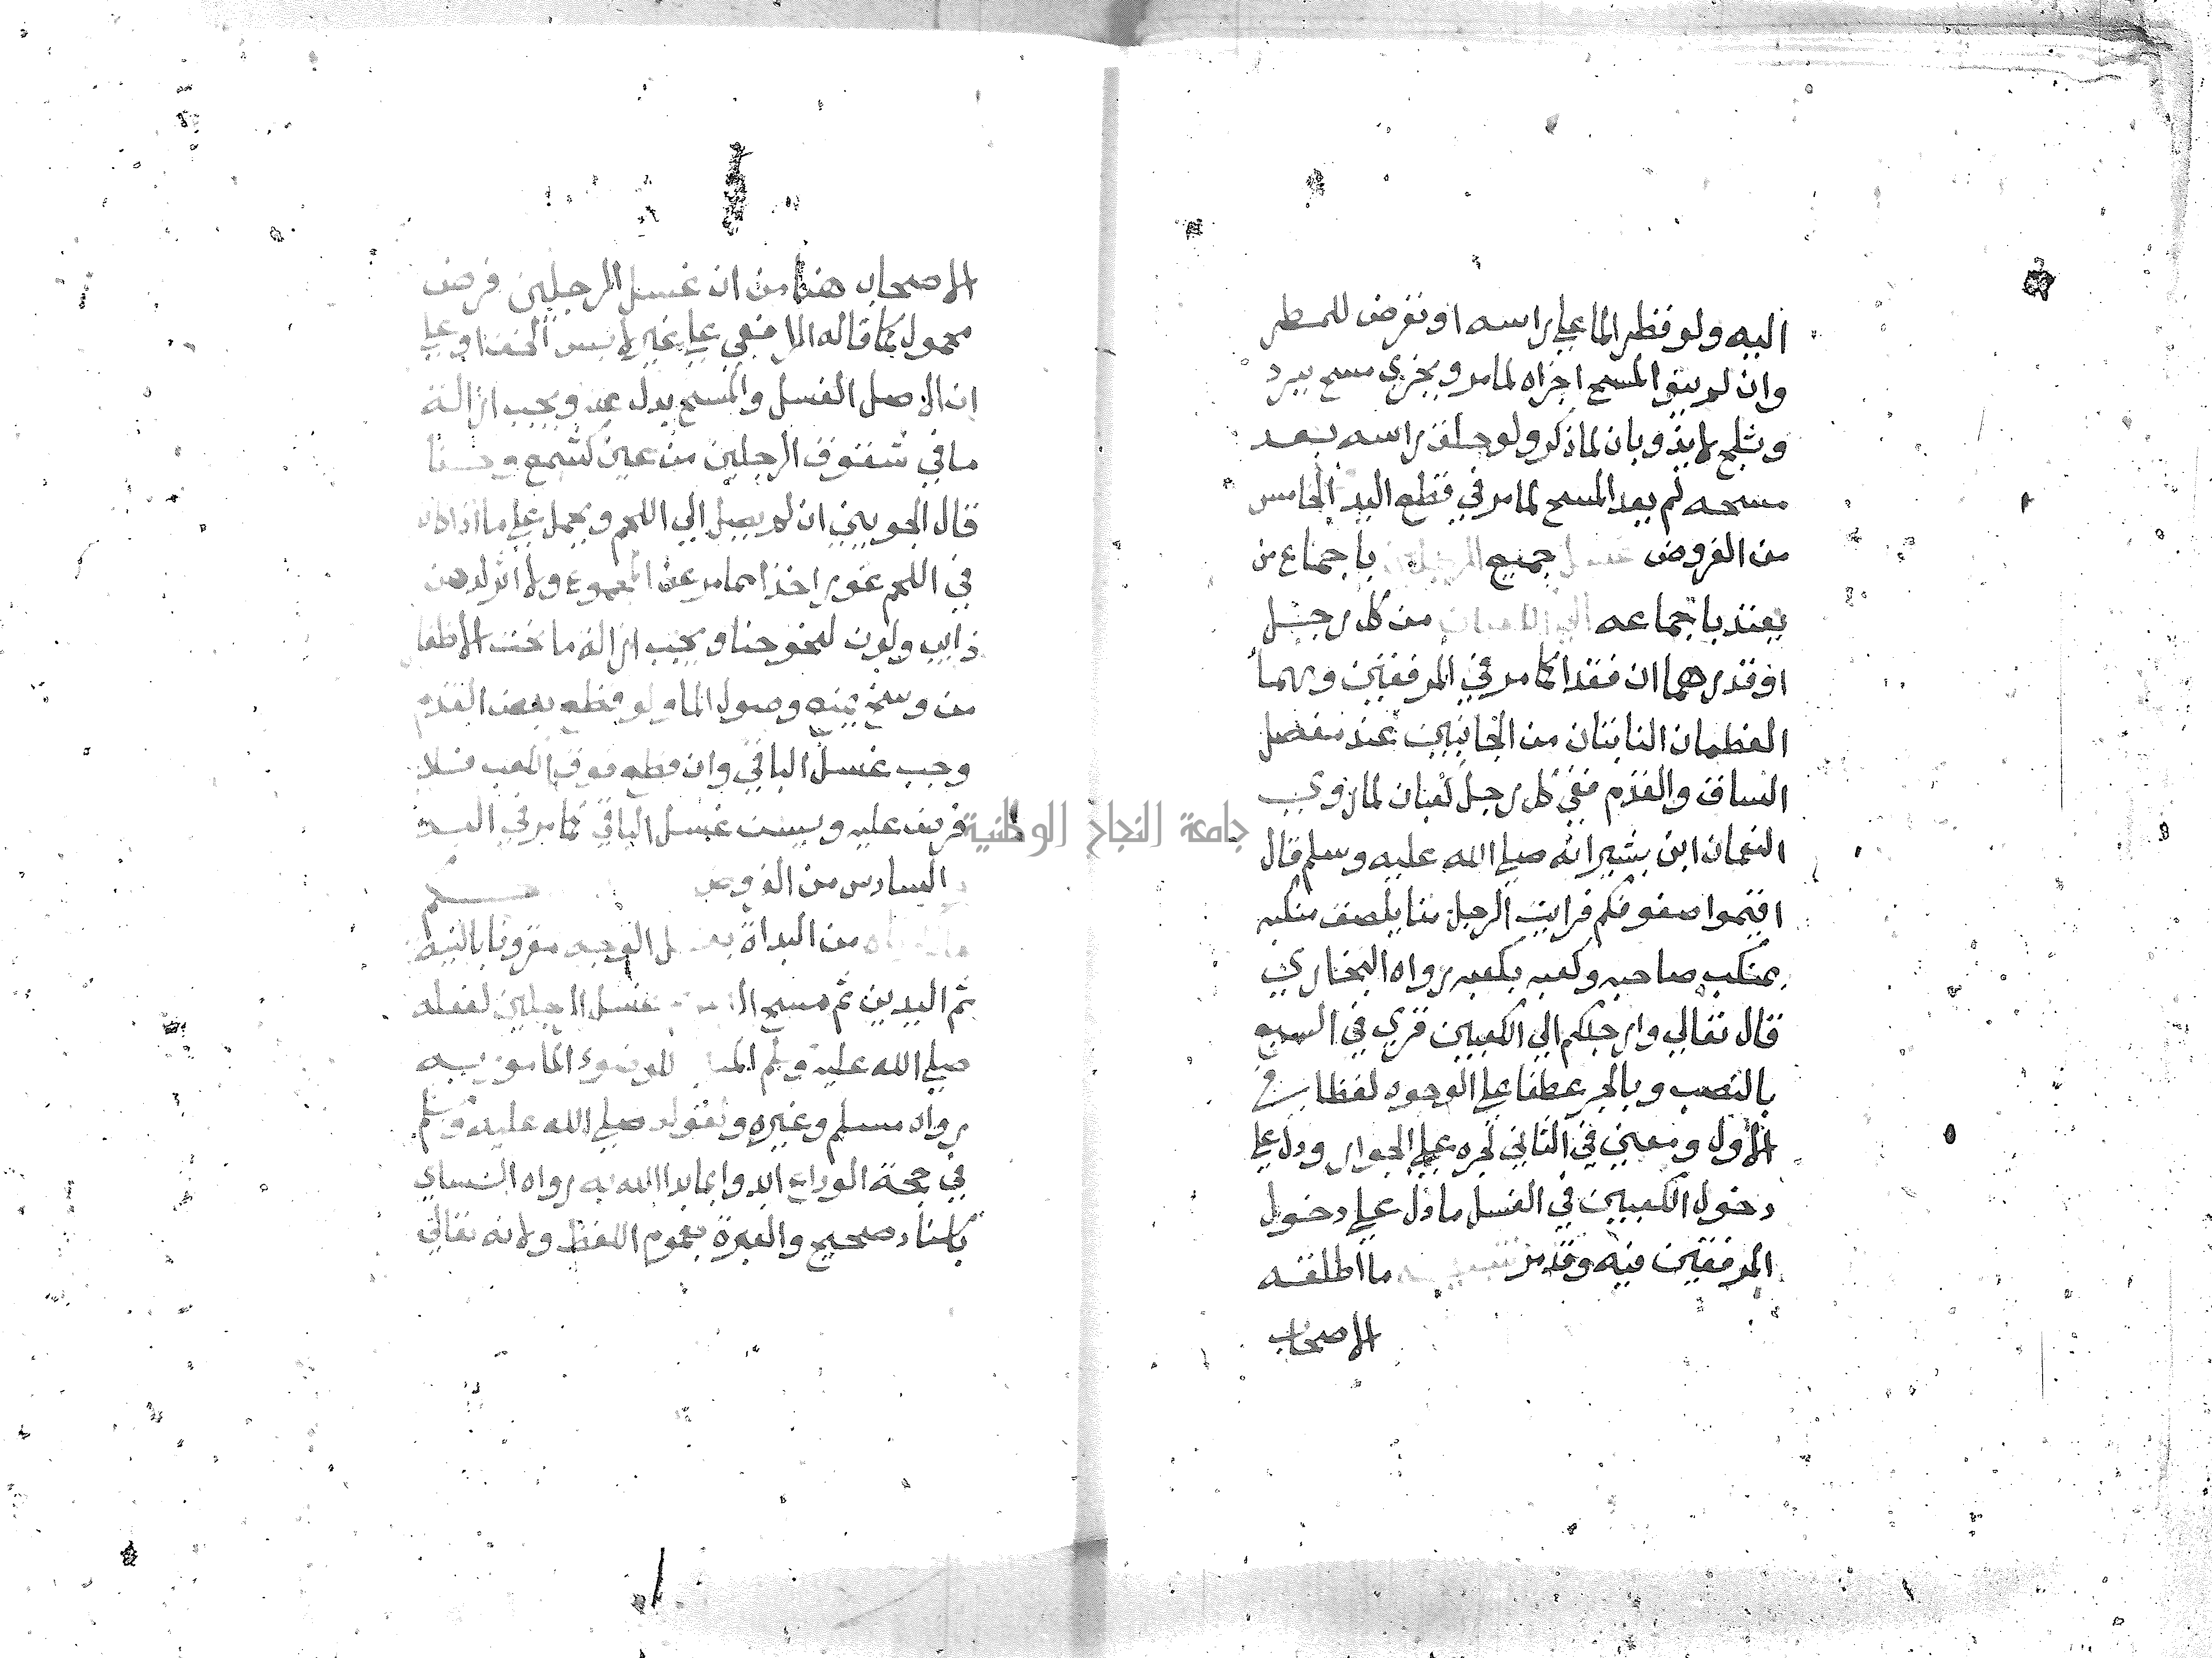 اليه ولو قطر الما علي راسه او تعرض للمطر
وان لم ينو المسح اجزاه لما مر ويجزي مسح ببرد
وثلج لا يذوبان لما ذكر ولو حلق راسه بعد
مسحه لم يعد المسح لما مر في قطع اليد الخامس
من الفروض غسل جميع الرجلين باجماع من
يعتد باجماعه الكعبين من كل رجل
او قدرهما ان فقدا كما مر في المرفقين وهما
العظمان الناتئان من الجانبين عند مفصل
الساق والقدم ففي كل رجل كعبان لما روي
النعمان ابن بشير انه صلي الله عليه وسلم قال
اقيموا صفوفكم فرايت الرجل منا يلصق منكبه
بمنكب صاحبه وكعبه بكعبه رواه البخاري
قال تعالي وارجلكم الي الكعبين قري في السبع
بالنصب وبالجر عطفا علي الوجوه لفظا في
الاول ومعني في الثاني لجره علي الجوار ودل علي
دخول الكعبين في الغسل ما دل علي دخول
المرفقين فيه وقد مر ما اطلقه
الاصحاب
الاصحاب هنا من ان غسل الرجلين فرض
محمول كما قاله الرافعي علي غير لابس الخف او علي
ان الاصل الغسل والمسح بدل عنه ويجب ازالة
ما في شقوق الرجلين من عين كشمع وحنا
قال الجويني ان لم يصل الي اللحم ويحمل علي ما اذا كان
في اللحم غور اخذا مما مر عن المجموع ولا اثر لدهن
ذايب ولون نحو حنا ويجب ازالة ما تحت الاظفار
من وسخ يمنع وصول الما ولو قطع بعض القدم
وجب غسل الباقي وان قطع فوق الكعب فلا
فرض عليه ويسن غسل الباقي كما مر في اليد
السادس من الفروض
من البداة بغسل الوجه مقرونا بالنية
ثم اليدين ثم مسح الراس غسل الرجلين لفعله
صلي الله عليه وسلم المبين للوضوء المامور به
رواه مسلم وغيره ولقوله صلي الله عليه وسلم
في حجة الوداع ابدوا بما بدا الله به رواه النساي
باسناد صحيح والعبرة بعموم اللفظ ولانه تعالي
جامعة النجاح الوطنية